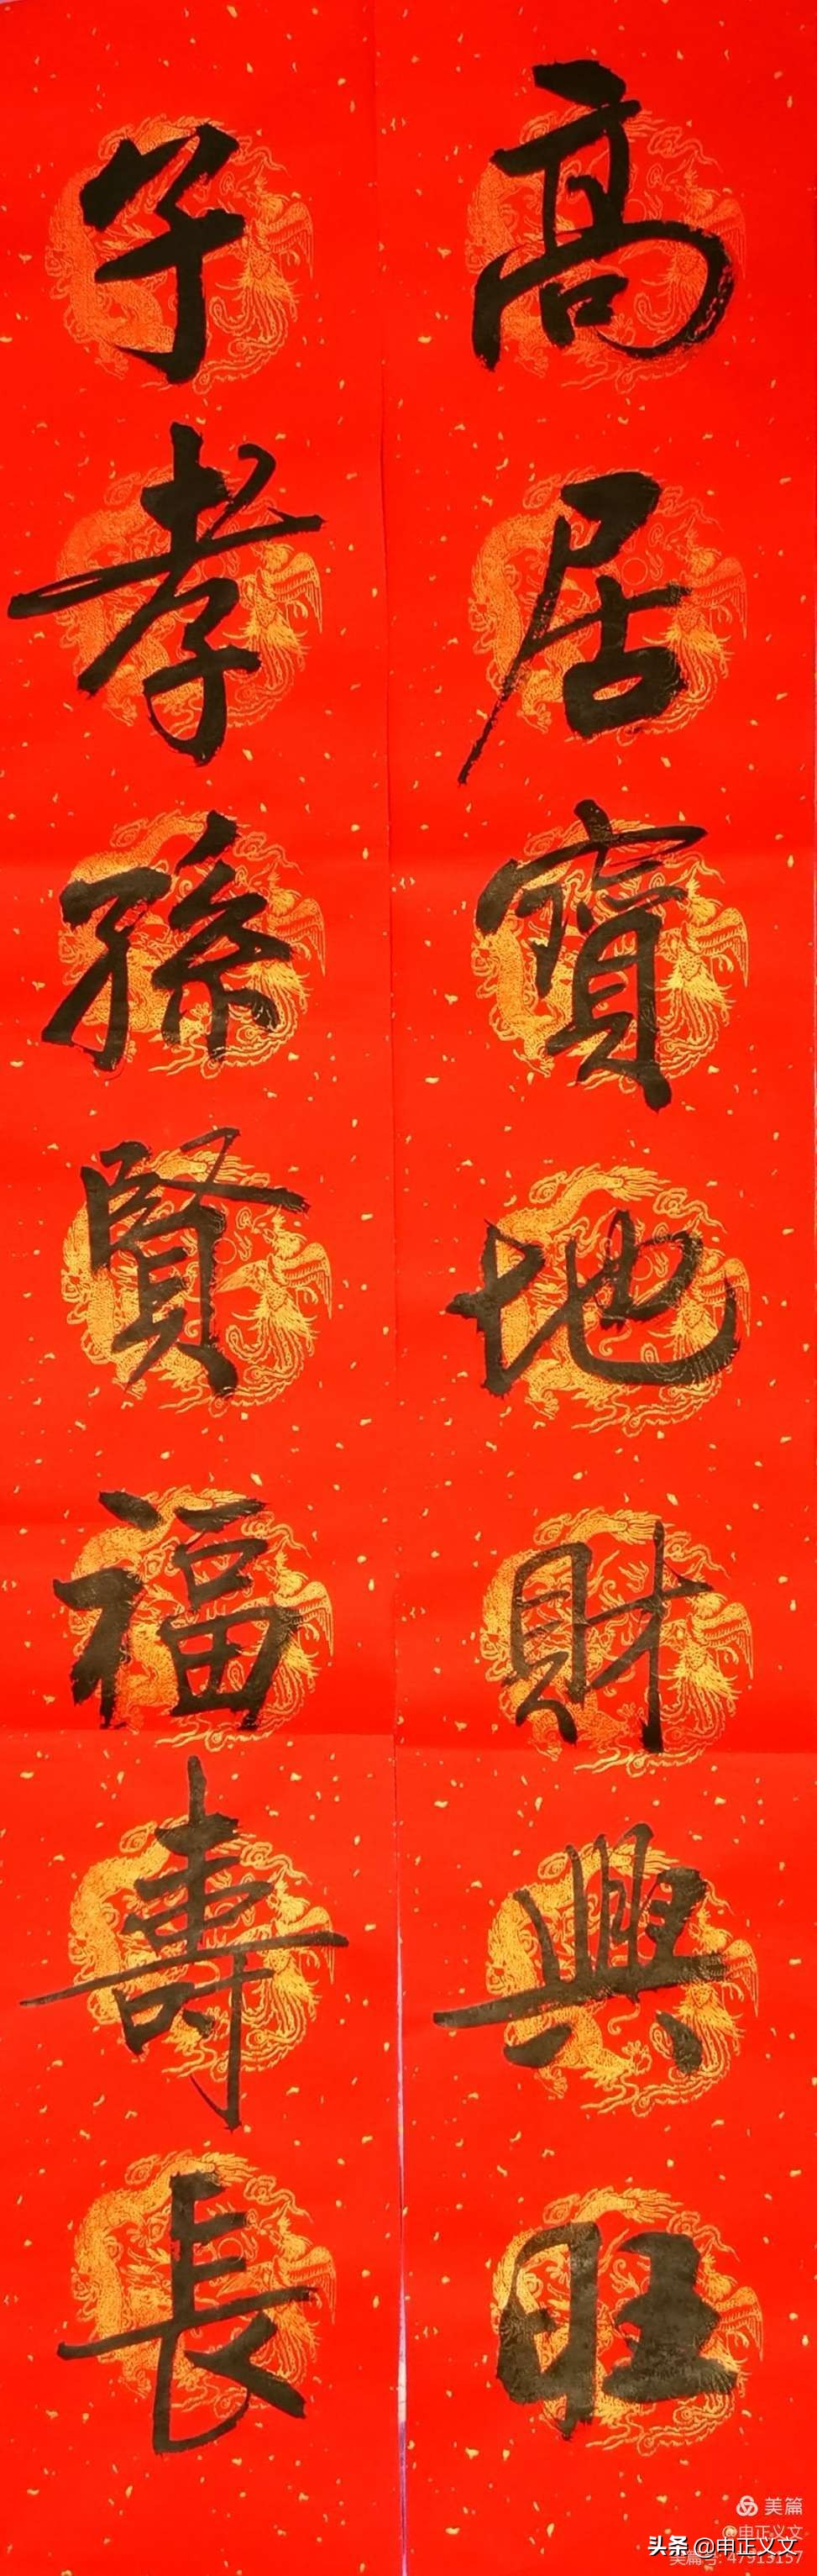 高居寶地財興旺
子孝孫賢福壽長
美篇
@申正义文
头条 @申正义文
美篇号: 47913157